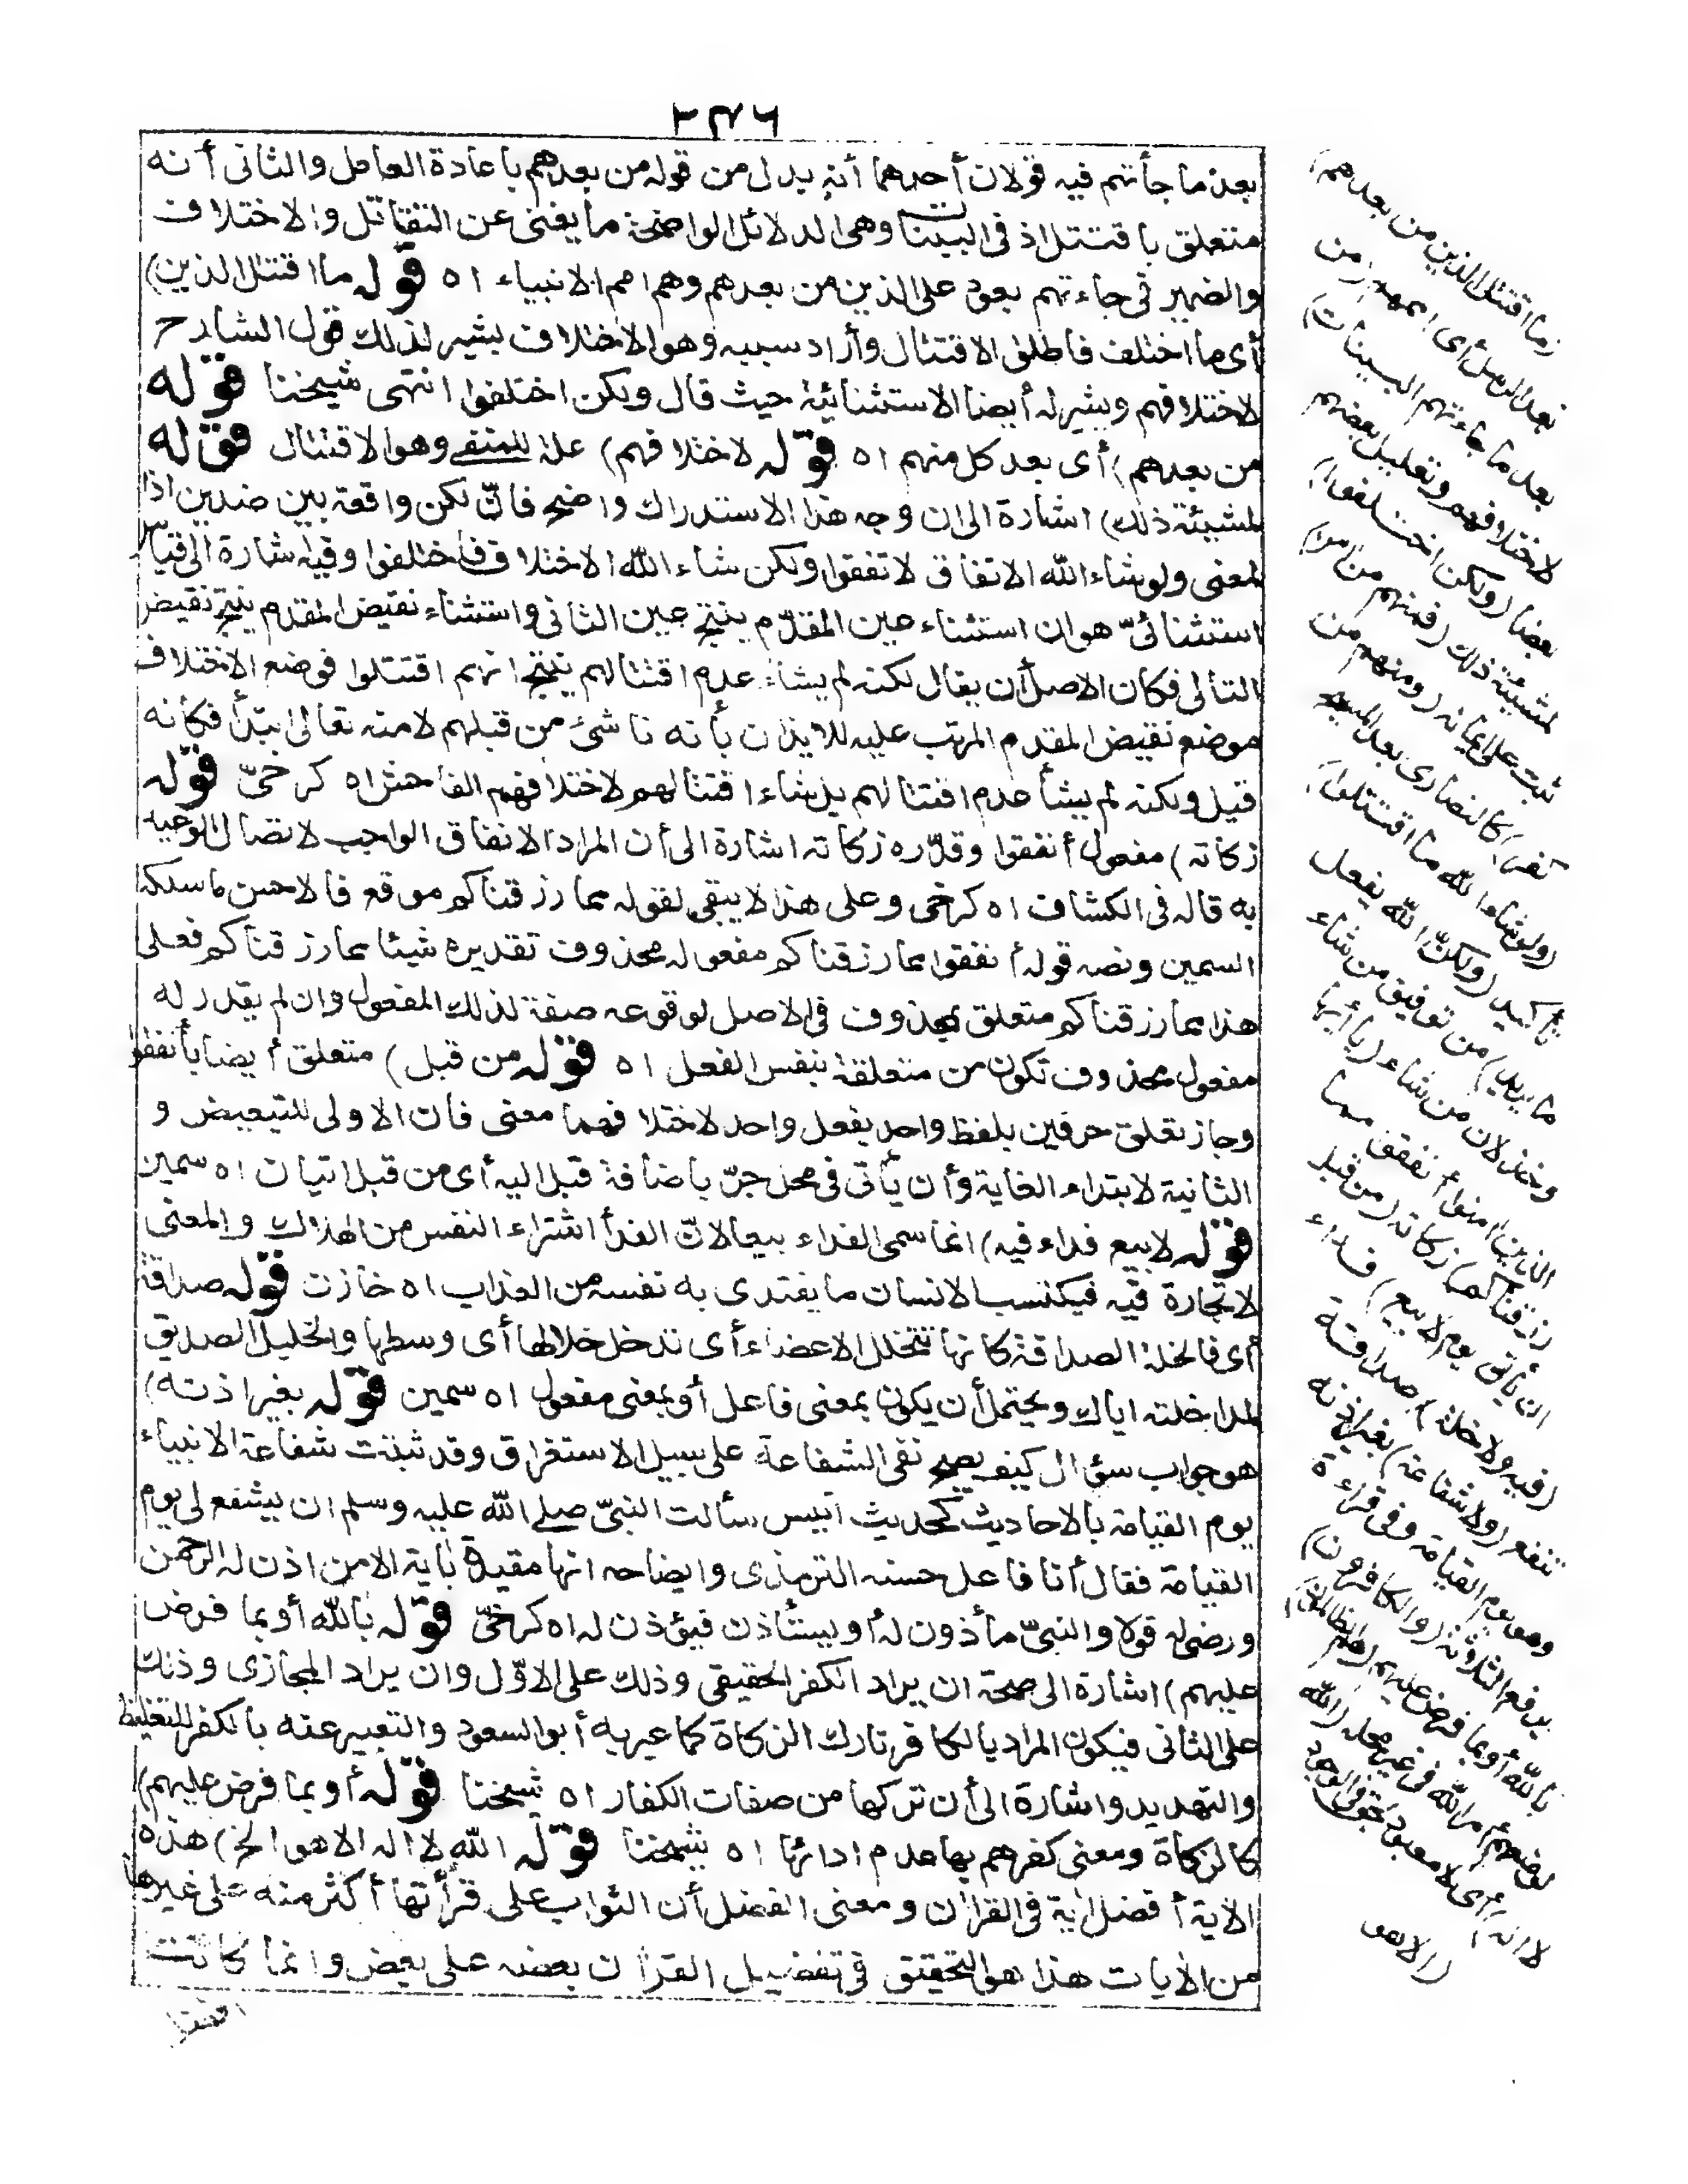 ٢٤٦
بعد ما جأتهم فيه قولان أحدهما أنه بدل من قوله من بعدهم باعادة العامل والثانى أنه
متعلق باقتتل اذ فى البينات وهى الدلائل الواضحة ما يغنى عن التقاتل والاختلاف
والضمير فى جاءتهم يعود على الذين من بعدهم وهم امم الانبياء اه قوله ما اقتتل الذين)
أى ما اختلف فاطلق الاقتتال وأراد سببه وهو الاختلاف يشير لذلك قول الشارح
لاختلافهم ويشير له أيضا الاستثنائية حيث قال ولكن اختلفوا انتهى شيخنا قوله
من بعدهم) أى بعد كل منهم اه قوله لاختلافهم) علة للمنفى وهو الاقتتال قوله
لمشيئة ذلك) اشارة الى ان وجه هذا الاستدراك واضح فان لكن واقعة بين ضدين اذا
لمعنى ولو شاء الله الاتفاق لاتفقوا ولكن شاء الله الاختلاف فاختلفوا وفيه اشارة الى قياس
استثنائىّ هو ان استثناء عين المقدّم ينتج عين الثانى واستثناء نقيض المقدم ينتج نقيض
التالى فكان الاصل أن يقال لكنه لم يشاء عدم اقتتالهم ينتج انهم اقتتلوا فوضع الاختلاف
موضع نقيض المقدم المرتب عليه للايذان بأنه ناشئ من قبلهم لا منه تعالى ابتدأ فكأنه
قيل ولكنه لم يشأ عدم اقتتالهم بل شاء اقتتالهم لاختلافهم الفاحش اه كرخىّ قوله
زكاته) مفعول أنفقوا وقدّره زكاته اشارة الى أن المراد الانفاق الواجب لاتصال الوعيد
به قاله فى الكشاف اه كرخى وعلى هذا لا يبقى لقوله مما رزقناكم موقع فالاحسن ما سلكه
السمين ونصه قوله أنفقوا مما رزقناكم مفعوله محذوف تقديره شيئا مما رزقناكم فعلى
هذا مما رزقناكم متعلق بمحذوف فى الاصل لوقوعه صفة لذلك المفعول وان لم يقدر له
مفعول محذوف تكون من متعلقة بنفس الفعل اه قوله من قبل) متعلق أيضا بأنفقوا
وجاز تعلق حرفين بلفظ واحد بفعل واحد لاختلافهما معنى فان الاولى للتبعيض و
الثانية لابتداء الغاية وأن يأتى فى محل جرّ باضافة قبل اليه أى من قبل اتيان اه سمين
قوله لا بيع فداء فيه) انما سمى الفداء بيعا لانّ الفدأ اشتراء النفس من الهلاك والمعنى
لا تجارة فيه فيكتسب الانسان ما يفتدى به نفسه من العذاب اه خازن قوله صداقة
أى فالخلة الصداقة كانها تتخلل الاعضاء أى تدخل خلالها أى وسطها والخليل الصديق
لمداخلته اياك ويحتمل أن يكون بمعنى فاعل أو بمعنى مفعول اه سمين قوله بغير اذنه)
هو جواب سؤال كيف يصح نفى الشفاعة على سبيل الاستغراق وقد ثبتت شفاعة الانبياء
يوم القيامة بالاحاديث كحديث انيس سألت النبىّ صلى الله عليه وسلم ان يشفع لى يوم
القيامة فقال أنا فاعل حسنه الترمذى وايضاحه انها مقيدة بآية الا من اذن له الرحمن
ورضى له قولا والنبىّ مأذون له أو يستأذن فيؤذن له اه كرخىّ قوله بالله أو بما فرض
عليهم) اشارة الى صحة ان يراد الكفر الحقيقى وذلك على الاوّل وان يراد المجازى وذلك
على الثانى فيكون المراد بالكافر تارك الزكاة كما عبر به أبو السعود والتعبير عنه بالكفر للتغليظ
والتهديد واشارة الى أن تركها من صفات الكفار اه شيخنا قوله أو بما فرض عليهم)
كالزكاة ومعنى كفرهم بها عدم ادائها اه شيخنا قوله الله لا اله الا هو الخ) هذه
الاية أفضل اية فى القران ومعنى الفضل أن الثواب على قرأتها أكثر منه على غيرها
من الايات هذا هو التحقيق فى تفضيل القرآن بعضه على بعض وانما كانت
(ما اقتتل الذين من بعدهم)
بعد الرسل أى اممهم (من
بعد ما جاءتهم البينات)
لاختلافهم وتضليل بعضهم
بعضا (ولكن اختلفوا)
لمشيئة ذلك (فمنهم من امن)
ثبت على ايمانه (ومنهم من
كفر) كالنصارى بعد المسيح
(ولو شاء الله ما اقتتلوا)
تأكيد (ولكنّ الله يفعل
ما يريد) من توفيق من شاء
وخذلان من شاء (يا أيها
الذين امنوا أنفقوا مما
رزقناكم) زكاته (من قبل
ان يأتى يوم لا بيع) فداء
(فيه ولا خلة) صداقة
تنفع (ولا شفاعة) بغير اذنه
وهو يوم القيامة وفى قراءة
برفع الثلاثة (والكافرون)
بالله أو بما فرض عليهم (هم الظالمون)
لوضعهم أمر الله فى غير محله (الله
لا اله) أى لا معبود بحق فى الوجود
(الا هو